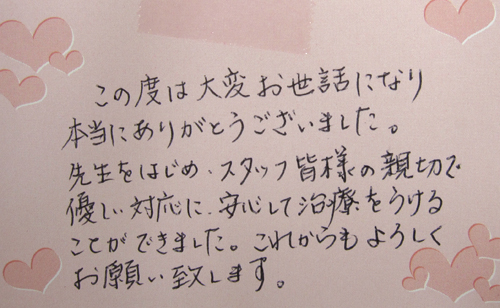 この度は大変お世話になり
本当にありがとうございました。
先生をはじめ、スタッフ皆様の親切で
優しい対応に、安心して治療をうける
ことができました。これからもよろしく
お願い致します。